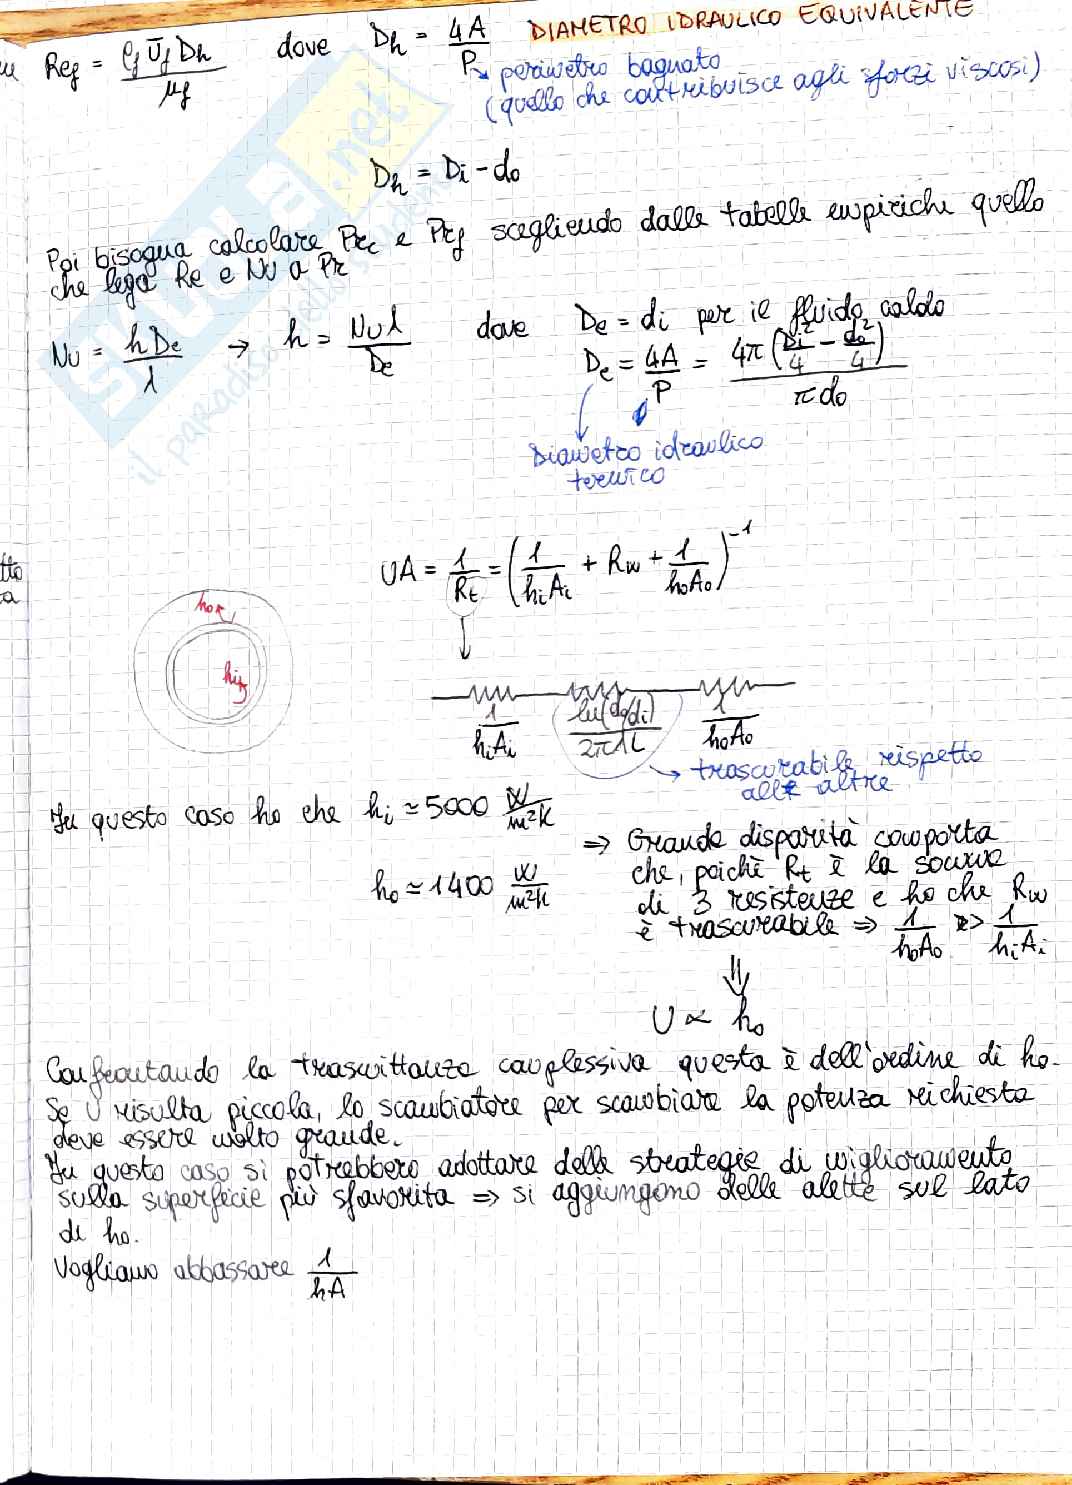 Re_f = ρ_f Ū_f D_h / μ_f   dove   D_h = 4A / P   DIAMETRO IDRAULICO EQUIVALENTE
perimetro bagnato
(quello che contribuisce agli sforzi viscosi)
D_h = D_i - d_o
Poi bisogna calcolare Pr_c e Pr_f scegliendo dalle tabelle empiriche quello
che lega Re e Nu a Pr
Nu = h D_e / λ → h = Nu λ / D_e   dove   D_e = d_i per il fluido caldo
D_e = 4A / P = 4π (D_i² / 4 - d_o² / 4) / π d_o
Diametro idraulico
termico
UA = 1 / R_t = (1 / h_i A_i + R_w + 1 / h_o A_o)^-1
tto
a
h_o
h_i
1 / h_i A_i   ln(d_o/d_i) / 2πλL   1 / h_o A_o
→ trascurabile rispetto
alle altre
In questo caso ho che h_i ≃ 5000 W / m²K
h_o ≃ 1400 W / m²K
⇒ Grande disparità comporta
che, poichè R_t è la somma
di 3 resistenze e ho che R_w
è trascurabile ⇒ 1 / h_o A_o >> 1 / h_i A_i
⇓
U ∝ h_o
Confrontando la trasmittanza complessiva questa è dell'ordine di h_o.
Se U risulta piccola, lo scambiatore per scambiare la potenza richiesta
deve essere molto grande.
In questo caso si potrebbero adottare delle strategie di miglioramento
sulla superficie più sfavorita ⇒ si aggiungono delle alette sul lato
di h_o.
Vogliamo abbassare 1 / hA
skuola.net
il paradiso dello studente